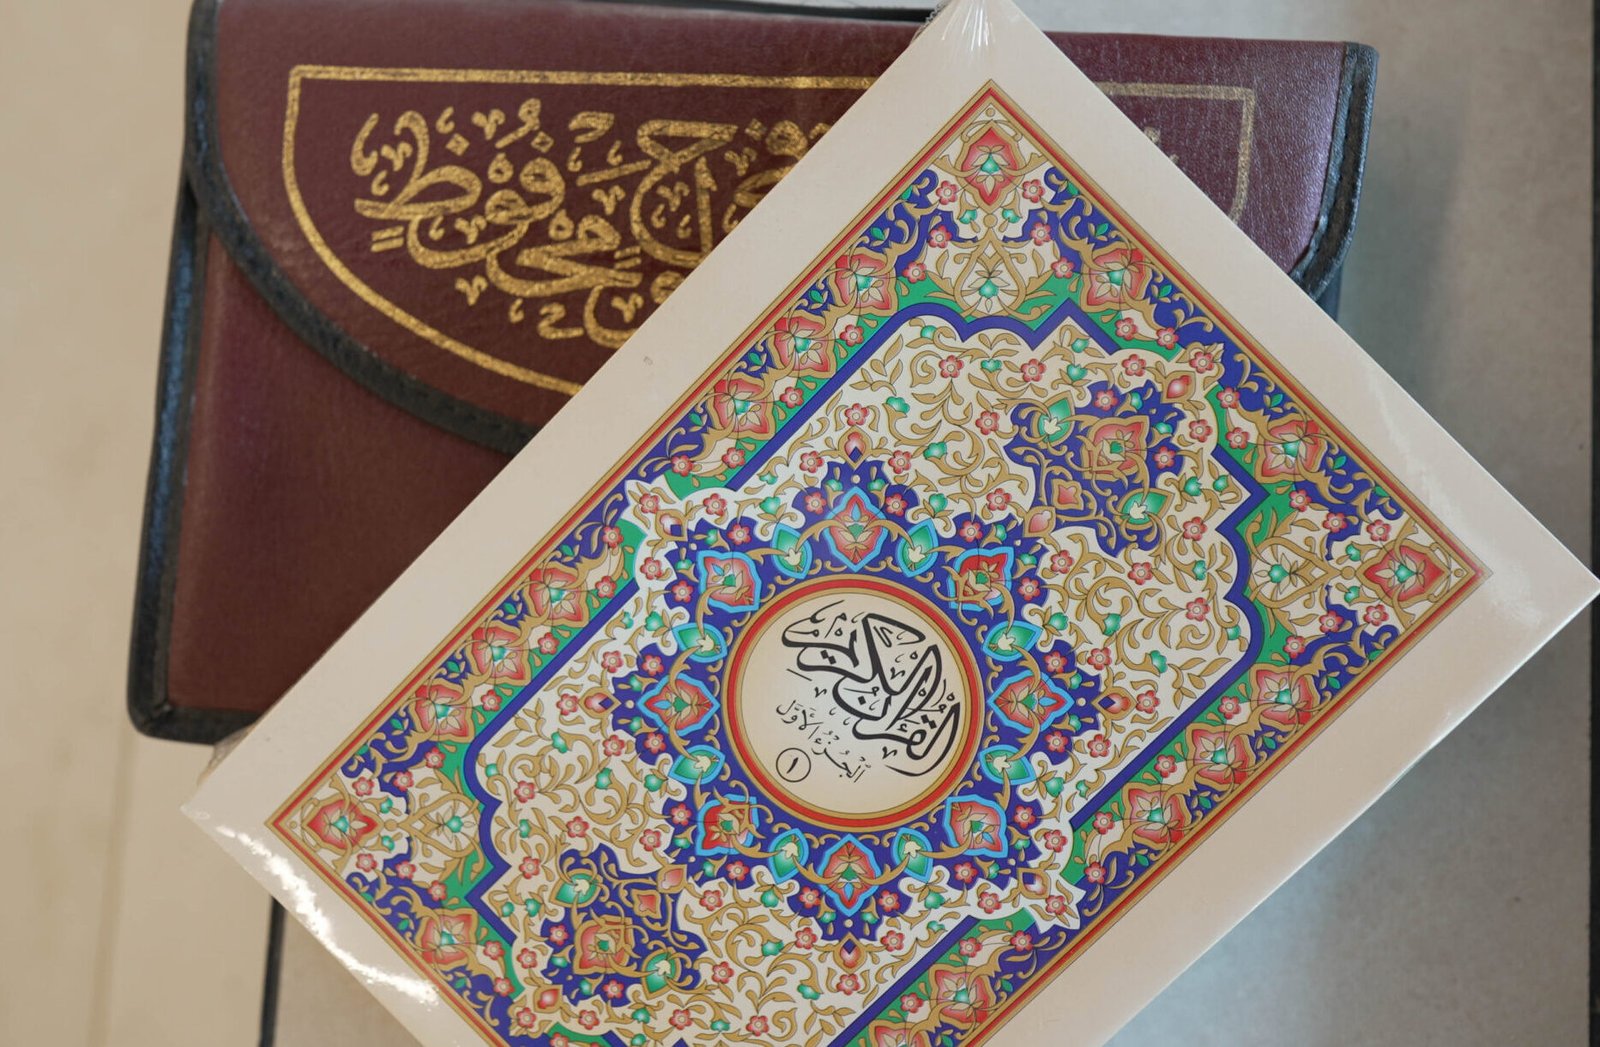 محفوظ
القرآن الكريم
الْجُزْءُ الأَوَّل
١